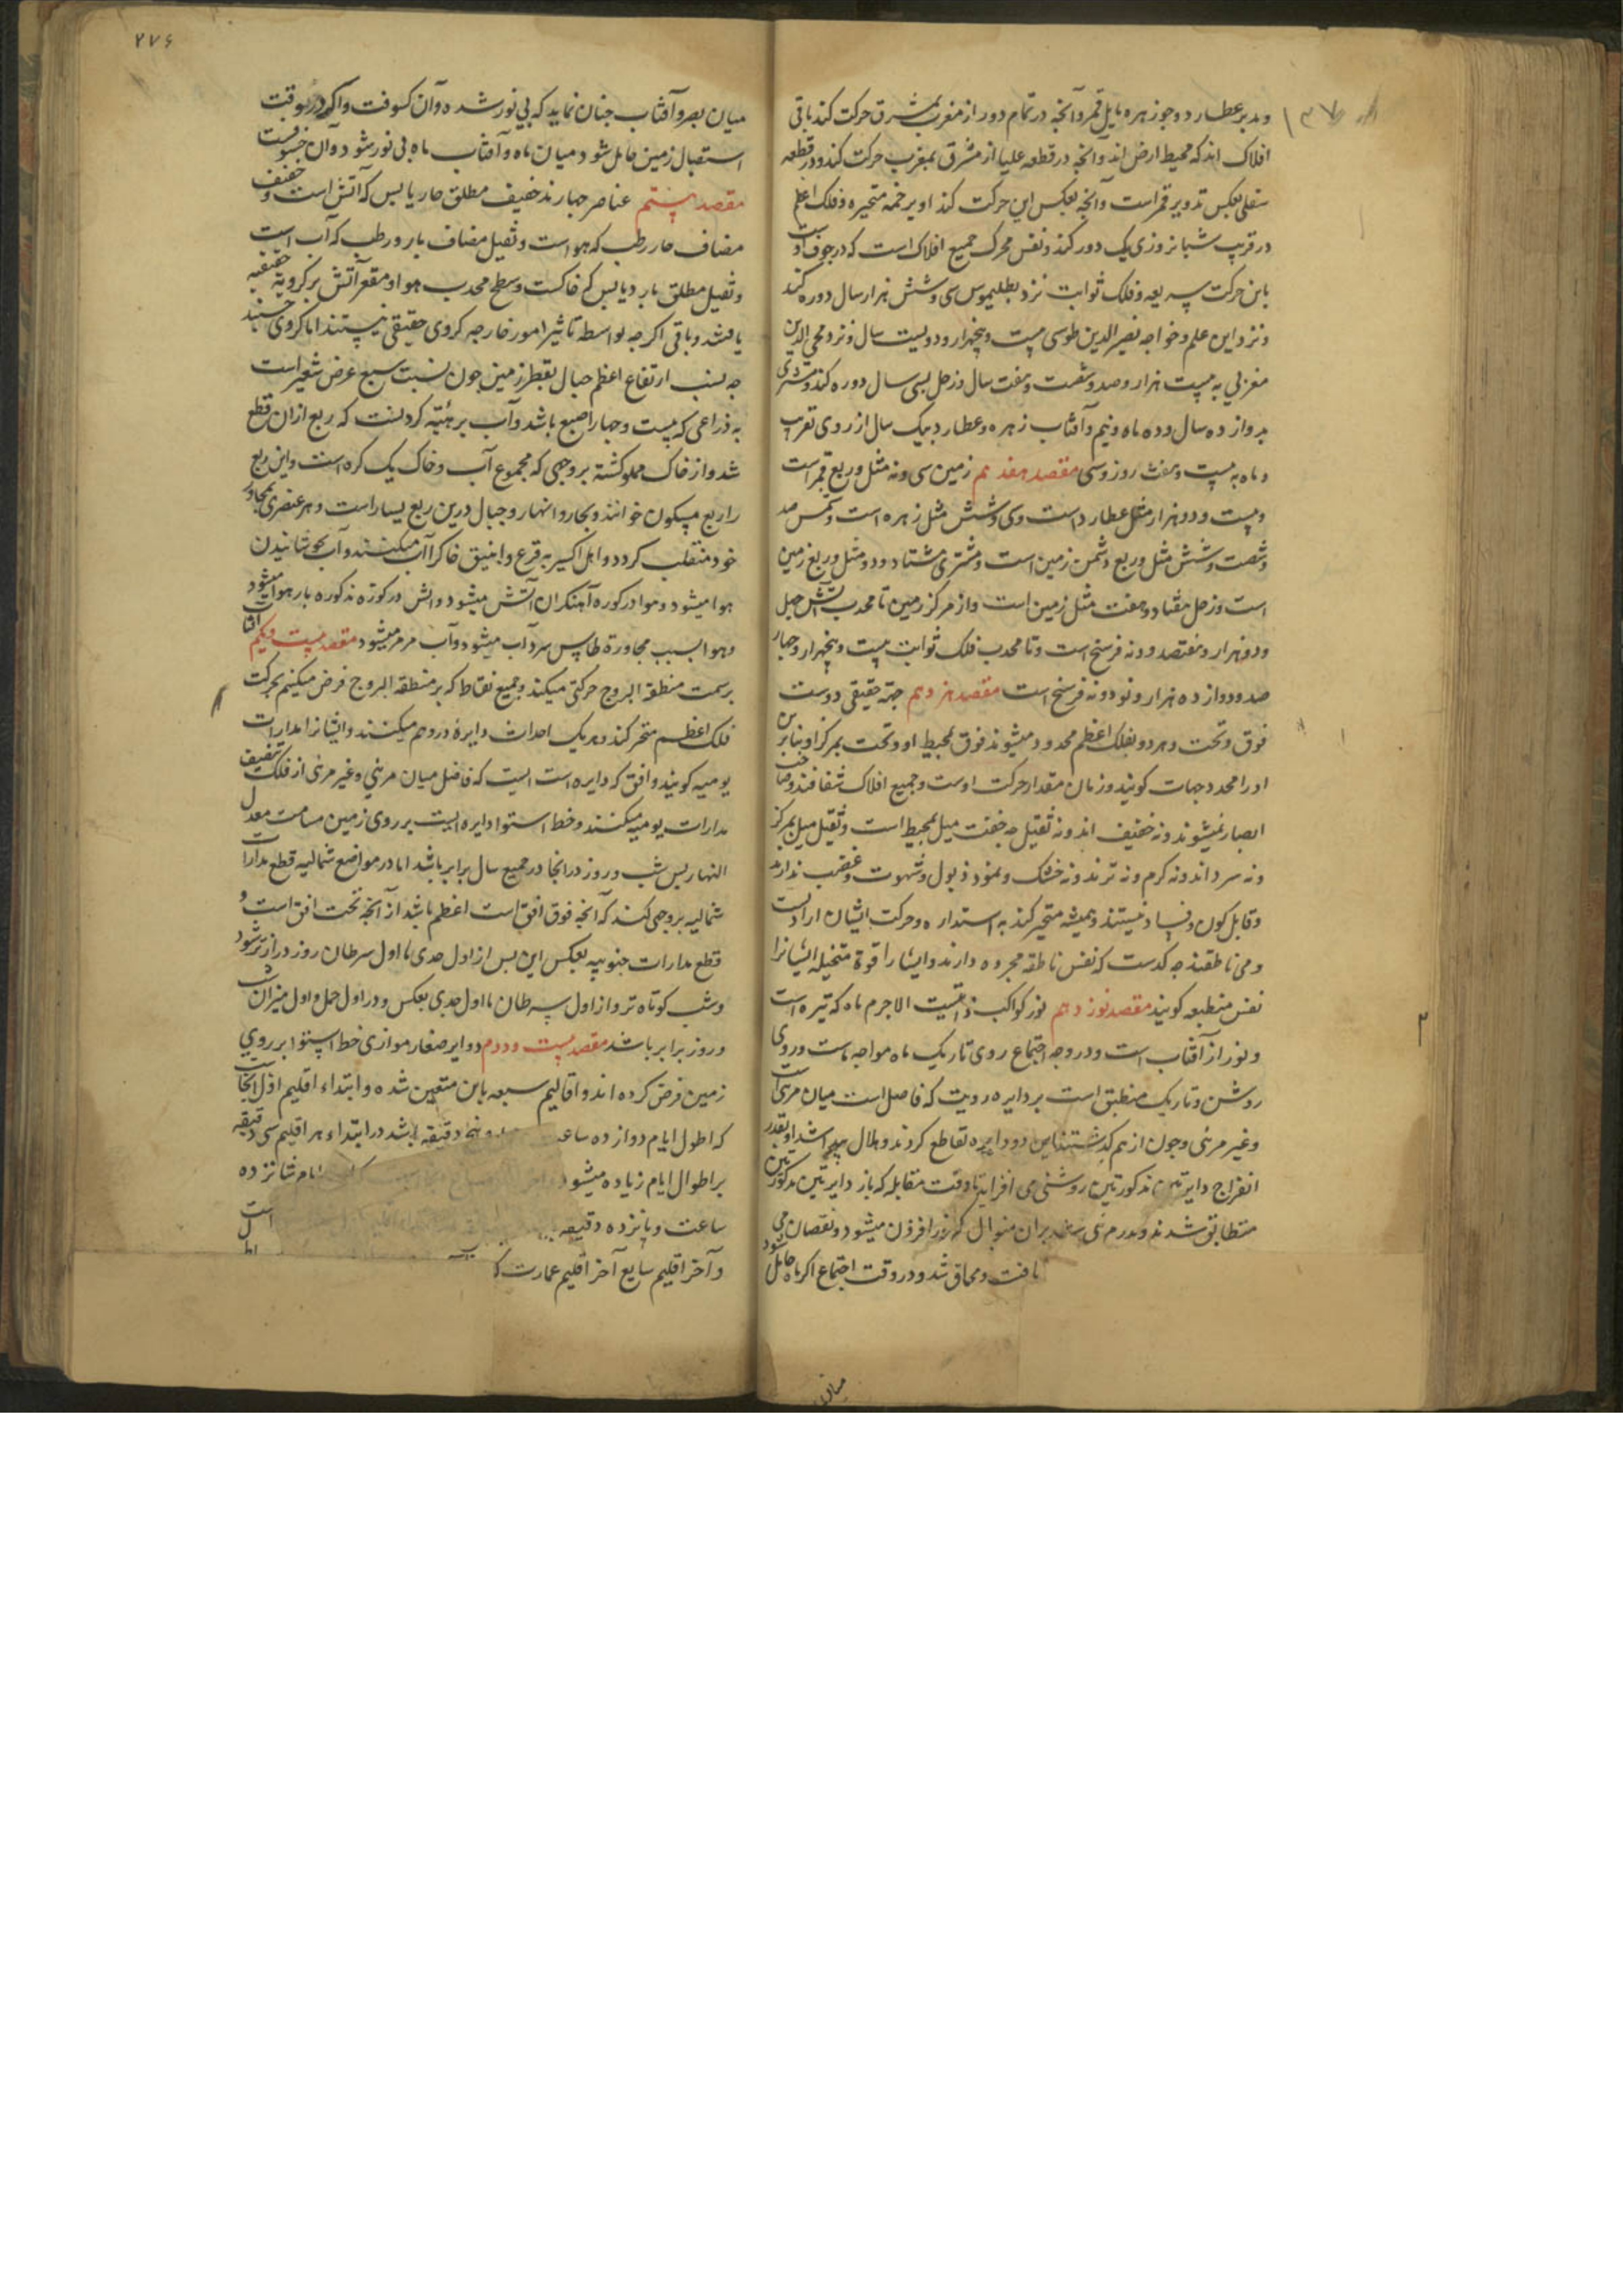 و مدیر عطارد و جوزهر و مایل قمر و آنچه در تمام دور از مغرب بمشرق حرکت کند باقی
افلاک اند که محیط ارض اند و آنچه در قطعه علیا از مشرق بمغرب حرکت کند و در قطعه
سفلی بعکس تدویر قمر است و آنچه بعکس این حرکت کند تداویر خمسه متحیره و فلک اعظم
در قریب شبانروزی یک دور کند و نفس محرک جمیع افلاک است که در جوف اوست
باین حرکت سریعه و فلک ثوابت نزد بطلیموس سی و شش هزار سال دوره کند
و نزد ابن اعلم و خواجه نصیر الدین طوسی بیست و پنجهزار و دویست سال و نزد محی الدین
مغربی به بیست هزار و صد و شصت و هفت سال و زحل بسی سال دوره کند و مشتری
بدوازده سال و ده ماه و نیم و آفتاب زهره و عطارد بیک سال از روی تقریب
و ماه به بیست و هفت روز و سی مقصد هفدهم زمین سی و نه مثل و ربع قمر است
و بیست و دو هزار مثل عطارد است و سی و شش مثل زهره است و شمس صد
و شصت و شش مثل و ربع و ثمن زمین است و مشتری هشتاد و دو مثل و ربع زمین
است و زحل هفتاد و هفت مثل زمین است و از مرکز زمین تا محدب آتش چهل
و دو هزار و هفتصد و نه فرسخ است و تا محدب فلک ثوابت بیست و پنجهزار و چهار
صد و دوازده هزار و نود و نه فرسخ است مقصد هژدهم جهة حقیقی دوست
فوق و تحت و هر دو بفلک اعظم محدود میشوند فوق بمحیط او و تحت بمرکز او بنابرین
او را محدد جهات کویند و زمان مقدار حرکت اوست و جمیع افلاک شفافند و صاحب
ابصار نمیشوند و نه خفیف اند و نه ثقیل چه خفت میل بمحیط است و ثقیل میل بمرکز
و نه سرد اند و نه کرم و نه ترند و نه خشک و نمو و ذبول و شهوت و غضب ندارند
و قابل کون و فساد نیستند و همیشه متحرکند به استداره و حرکت ایشان ارادیست
و می ناطقند چه کدست که نفس ناطقه مجرده دارند و ایشان را قوة متخیله ایشانرا
نفس منطبعه کویند مقصد نوزدهم نور کواکب ذاتیست الا جرم ماه که تیره است
و نور از آفتاب است و در وجه اجتماع روی تاریک ماه مواجه ماست و روی
روشن و تاریک منطبق است بر دایره رویت که فاصل است میان مرئی
و غیر مرئی و چون از هم کذشتند این دو دایره تقاطع کردند و هلال پیدا شد و بقدر
انفراج دایرتین مذکورتین روشنی می افزاید تا وقت مقابله که باز دایرتین مذکورتین
متطابق شدند و بدر مرئی بران منوال که نور افزون میشود و نقصان می
یافت و محاق شد و در وقت اجتماع اکر ماه حایل شود
۲۷۶
میان بصر و آفتاب چنان نماید که بی نور شده و آن کسوفست و اکر در وقت
استقبال زمین حایل شود میان ماه و آفتاب ماه بی نور شود و آن خسوفست
مقصد بیستم عناصر چهارند خفیف مطلق حار یابس که آتش است و خفیف
مضاف حار رطب که هواست و ثقیل مضاف بارد رطب که آب است
و ثقیل مطلق بارد یابس که خاکست و سطح محدب هوا و مقعر آتش بر کرویة حقیقیه
یافتند و باقی اکرچه بواسطه تاثیر امور خارجه کروی حقیقی نیستند اما کروی حسیند
چه نسبت ارتفاع اعظم جبال بقطر زمین چون نسبت سبع عرض شعیر است
به ذراعی که بیست و چهار اصبع باشد و آب بر هئیة کره ایست که ربع از ان قطع
شد و از خاک مملو کشته بروجهی که مجموع آب و خاک یک کره است و این ربع
را ربع مسکون خوانند و بحار و انهار و جبال درین ربع بسیار است و هر عنصری بمجاور
خود منقلب کردد و اهل اکسیر به قرع و انبیق خاک را آب میکنند و آب بجوشانیدن
هوا میشود و هوا در کوره آهنکران آتش میشود و آتش در کوره مذکوره باز هوا میشود
و هوا بسبب مجاورة طاس سرد آب میشود و آب مرمر میشود مقصد بیست و یکم آفتاب
بر سمت منطقة البروج حرکتی میکند و جمیع نقاط که بر منطقة البروج فرض میکنیم بحرکت
فلک اعظم متحرکند و هر یک احداث دایرهٔ در وهم میکنند و ایشانرا مدارات
یومیه کویند و افق که دایره است ایست که فاصل میان مرئی و غیر مرئی از فلک تنصیف
مدارات یومیه میکنند و خط استوا دایره ایست بر روی زمین مسامت معدل
النهار پس شب و روز در انجا در جمیع سال برابر باشد اما در مواضع شمالیه قطع مدارات
شمالیه بروجهی کند که آنچه فوق افق است اعظم باشد از آنچه تحت افق است و
قطع مدارات جنوبیه بعکس این پس از اول جدی تا اول سرطان روز درازتر شود
و شب کوتاه تر و از اول سرطان تا اول جدی بعکس و در اول حمل و اول میزان شب
و روز برابر باشد مقصد بیست و دوم دوایر صغار موازی خط استوا بر روی
زمین فرض کرده اند و اقالیم سبعه باین متعین شده و ابتداء اقلیم اول انجاست
که اطول ایام دوازده ساعت و پنج دقیقه باشد در ابتداء هر اقلیم سی دقیقه
بر اطول ایام زیاده میشود ایام شانزده
ساعت و پانزده دقیقه است
و آخر اقلیم سابع آخر اقلیم عمارت